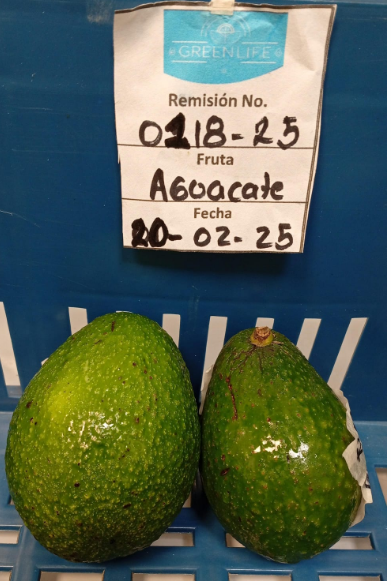 GREENLIFE
Remisión No.
0218-25
Fruta
Aguacate
Fecha
20-02-25